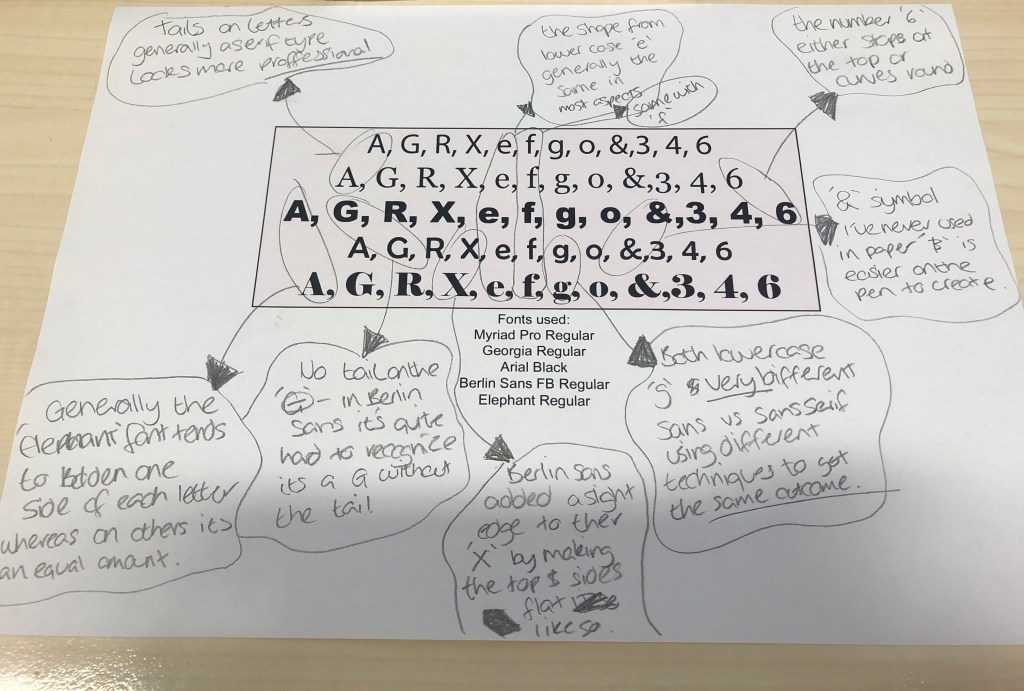 tails on letters
generally a serif type
looks more proffessional
the shape from
lower case 'e'
generally the
same in
most aspects
same with
'f'
the number '6'
either stops at
the top or
curves round
A, G, R, X, e, f, g, o, &,3, 4, 6
A, G, R, X, e, f, g, o, &,3, 4, 6
A, G, R, X, e, f, g, o, &,3, 4, 6
A, G, R, X, e, f, g, o, &,3, 4, 6
A, G, R, X, e, f, g, o, &,3, 4, 6
'&' symbol
I've never used
in paper '$' is
easier on the
pen to create.
Fonts used:
Myriad Pro Regular
Georgia Regular
Arial Black
Berlin Sans FB Regular
Elephant Regular
Generally the
'Elephant' font tends
to Bolden one
side of each letter
whereas on others its
an equal amount.
No tail on the
'G' - in Berlin
Sans it's quite
hard to recognize
its a G without
the tail.
Berlin Sans
added a slight
edge to ther
'X' by making
the top $ sides
flat
like so.
Both lowercase
'g' $ very different
sans vs sans serif
using different
techniques to get
the same outcome.